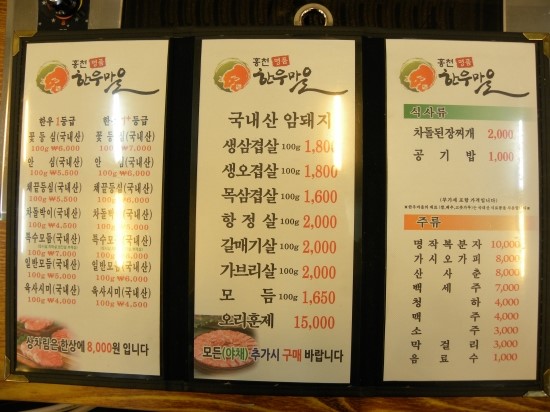 홍천 명품
한우마을
한우1등급 한우1+등급
꽃등심(국내산) 꽃등심(국내산)
100g ₩6,000 100g ₩7,000
안심(국내산) 안심(국내산)
100g ₩5,500 100g ₩6,500
채끝등심(국내산) 채끝등심(국내산)
100g ₩5,500 100g ₩6,000
차돌박이(국내산) 차돌박이(국내산)
100g ₩4,500
특수모듬(국내산) 특수모듬(국내산)
100g ₩7,000
일반모듬(국내산) 일반모듬(국내산)
100g ₩5,000 100g ₩6,000
육사시미(국내산) 육사시미(국내산)
100g ₩4,000 100g ₩4,500
상차림은 한상에 8,000원 입니다
홍천 명품
한우마을
국내산 암돼지
생삼겹살 100g 1,800
생오겹살 100g 1,800
목삼겹살 100g 1,600
항정살 100g 2,000
갈매기살 100g 2,000
가브리살 100g 2,000
모듬 100g 1,650
오리훈제 15,000
모든(야채) 추가시 구매 바랍니다
홍천 명품
한우마을
식사류
차돌된장찌개 2,000
공기밥 1,000
(부가세 포함 가격입니다)
주류
명작복분자 10,000
가시오가피 8,000
산사춘 8,000
백세주 7,000
청하 4,000
맥주 4,000
소주 3,000
막걸리 3,000
음료수 1,000